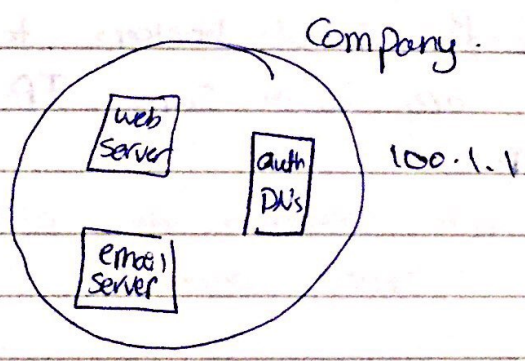 Company.
web
Server
auth
DNs
100.1.1
email
Server